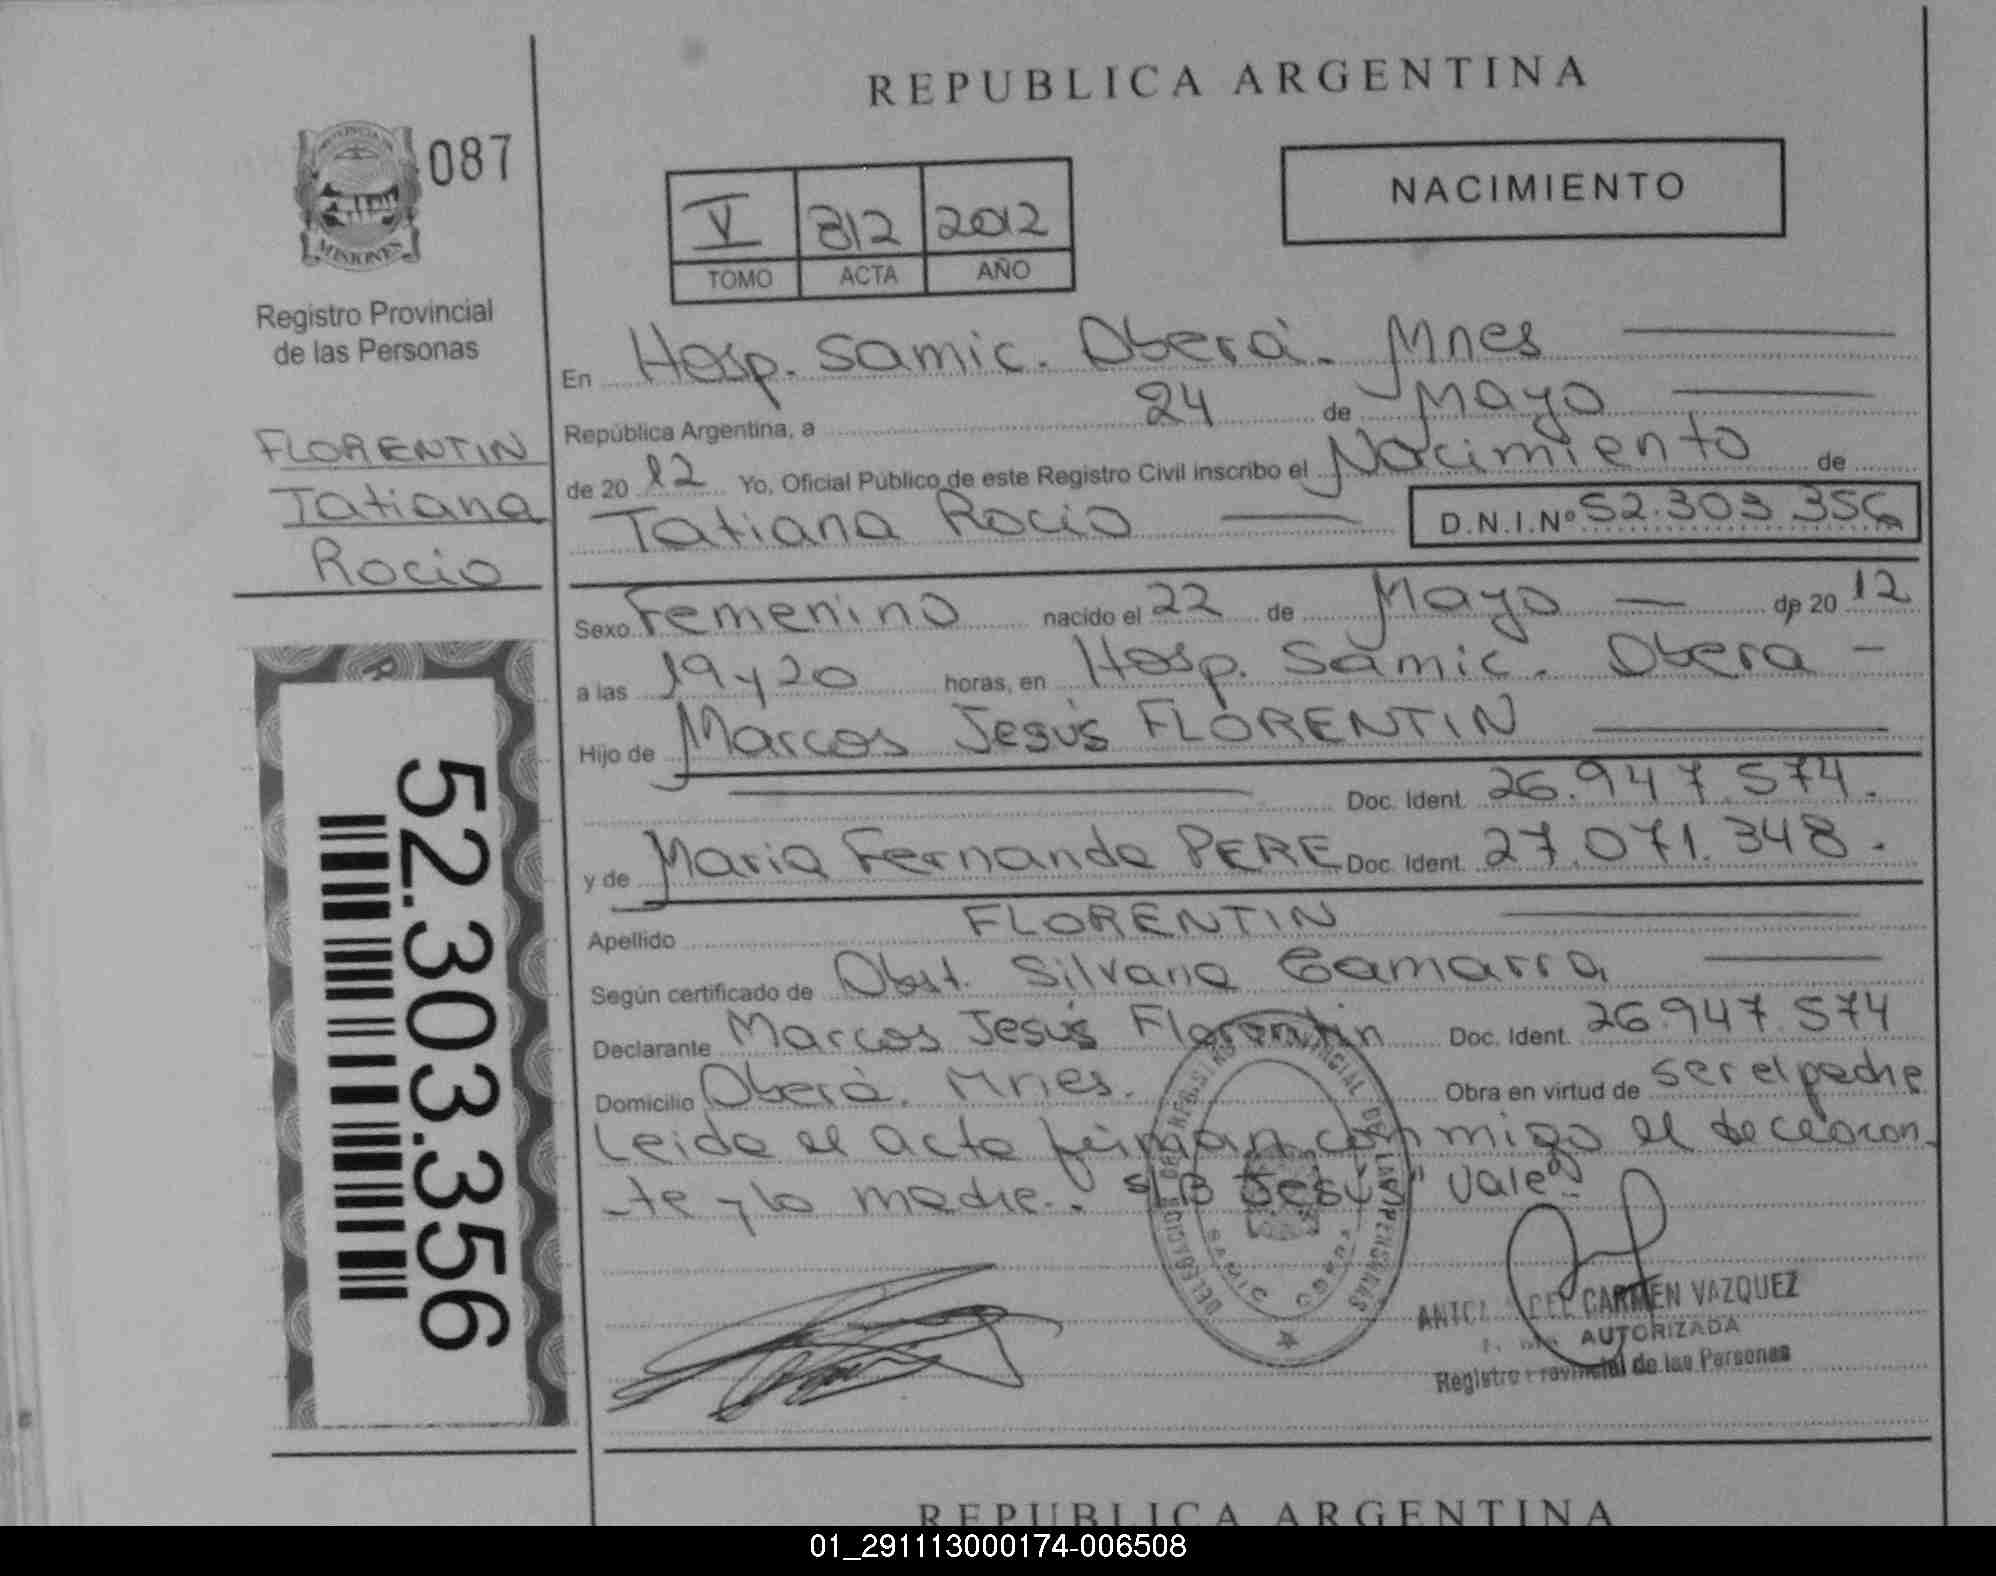 REPUBLICA ARGENTINA
087
PROVINCIA DE
MISIONES
Registro Provincial
de las Personas
FLORENTIN
Tatiana
Rocio
52.303.356
NACIMIENTO
V 812 2012
TOMO ACTA AÑO
En Hosp. Samic. Oberá. Mnes
República Argentina, a 24 de Mayo
de 20 12 Yo, Oficial Público de este Registro Civil inscribo el Nacimiento de
Tatiana Rocio D.N.I.Nº 52.303.356
Sexo Femenino nacido el 22 de Mayo de 20 12
a las 19 y 20 horas, en Hosp. Samic. Obera
Hijo de Marcos Jesús FLORENTIN
Doc. Ident. 26.947.574.
y de Maria Fernanda PERE Doc. Ident. 27.071.348.
Apellido FLORENTIN
Según certificado de Obst. Silvana Gamarra
Declarante Marcos Jesús Florentin Doc. Ident. 26.947.574
Domicilio Oberá. Mnes. Obra en virtud de ser el padre
Leida el acta firman conmigo el declaran
te y la madre. S/B "Jesús" Vale
DELEGACION DEL REGISTRO PROVINCIAL DE LAS PERSONAS
DEL CARMEN VAZQUEZ
AUTORIZADA
Registro Provincial de las Personas
REPUBLICA ARGENTINA
01_291113000174-006508